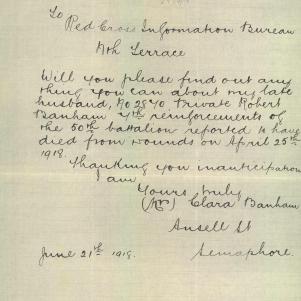 To
Red Cross Information Bureau
Nth Terrace
Will you please find out any
thing you can about my late
husband, No 2870 Private Robert
Banham 7th reinforcements of
the 50th battalion reported to have
died from wounds on April 25th
1918.
Thanking you in anticipation
I am
Yours truly
(Mrs) Clara Banham
Ansell St
Semaphore.
June 21st 1918.